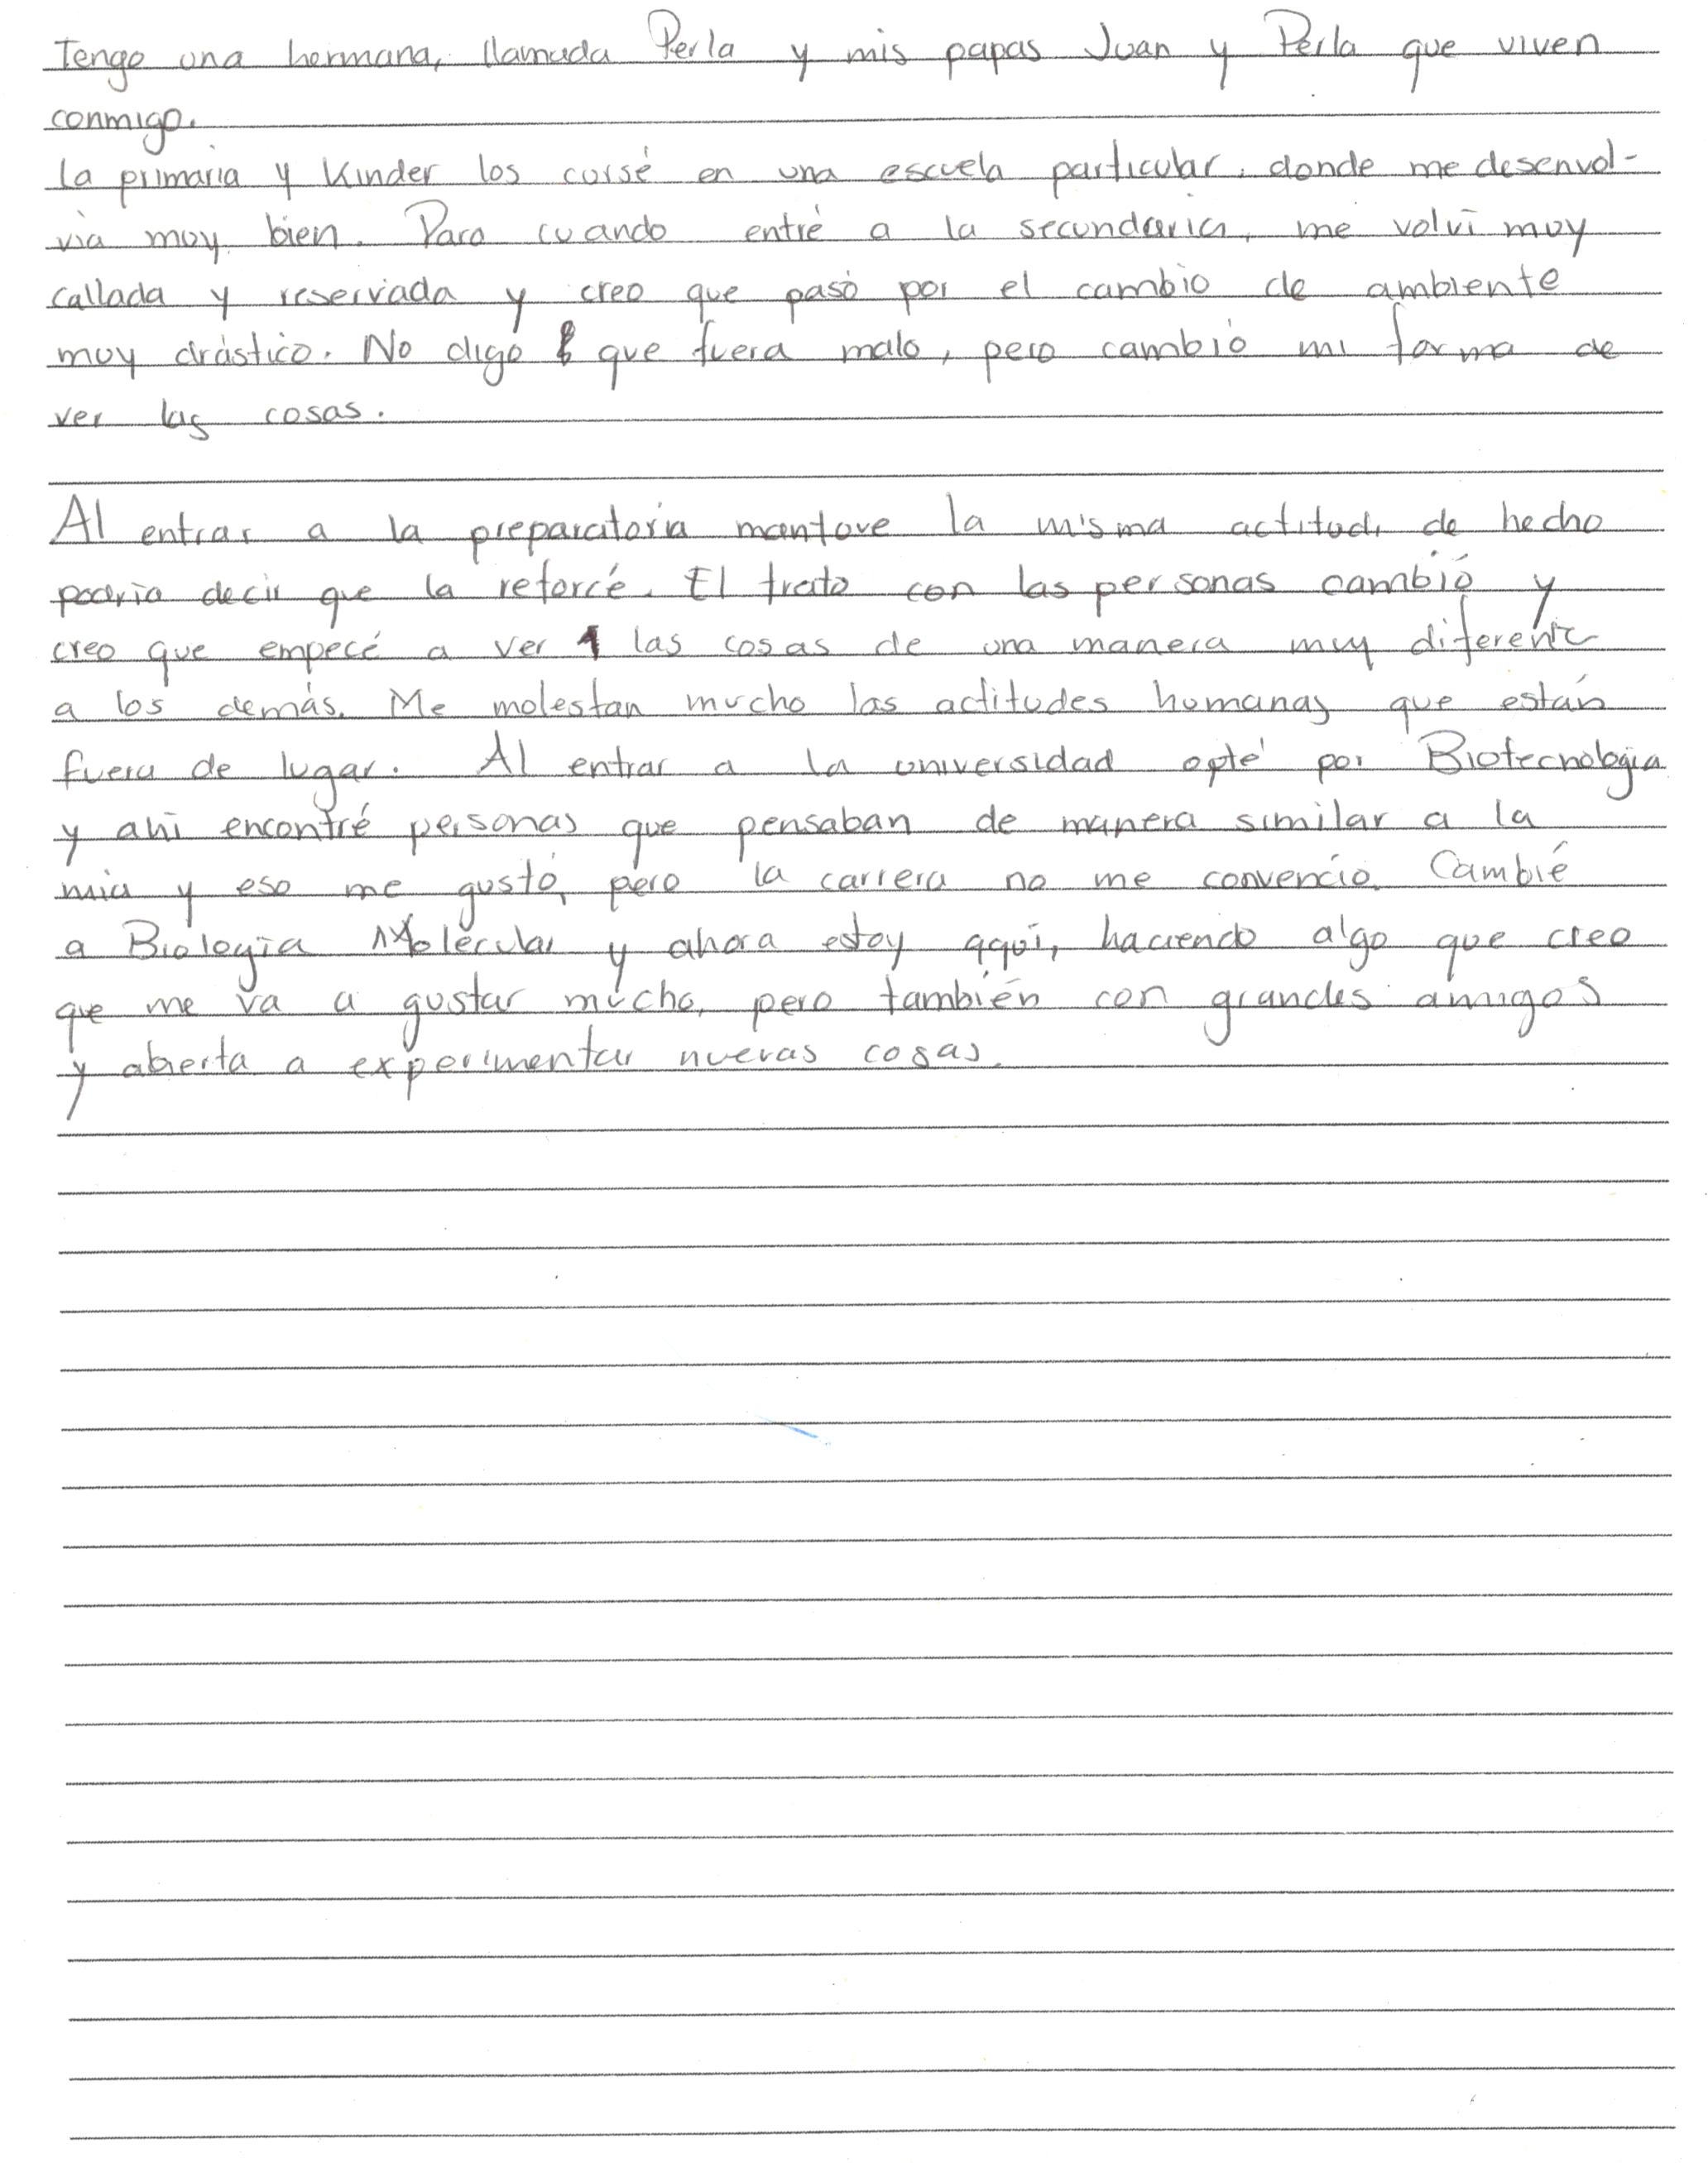 Tengo una hermana, llamada Perla y mis papas Juan y Perla que viven
conmigo.
La primaria y Kinder los cursé en una escuela particular, donde me desenvol-
vía muy bien. Para cuando entré a la secundaria, me volví muy
callada y reservada y creo que pasó por el cambio de ambiente
muy drástico. No digo que fuera malo, pero cambió mi forma de
ver las cosas.
Al entrar a la preparatoria mantuve la misma actitud, de hecho
podría decir que la reforcé. El trato con las personas cambió y
creo que empecé a ver las cosas de una manera muy diferente
a los demás. Me molestan mucho las actitudes humanas que están
fuera de lugar. Al entrar a la universidad opté por Biotecnología
y ahí encontré personas que pensaban de manera similar a la
mia y eso me gustó, pero la carrera no me convencío. Cambié
a Biología Molecular y ahora estoy aquí, haciendo algo que creo
que me va a gustar mucho, pero también con grandes amigos
y abierta a experimentar nuevas cosas.